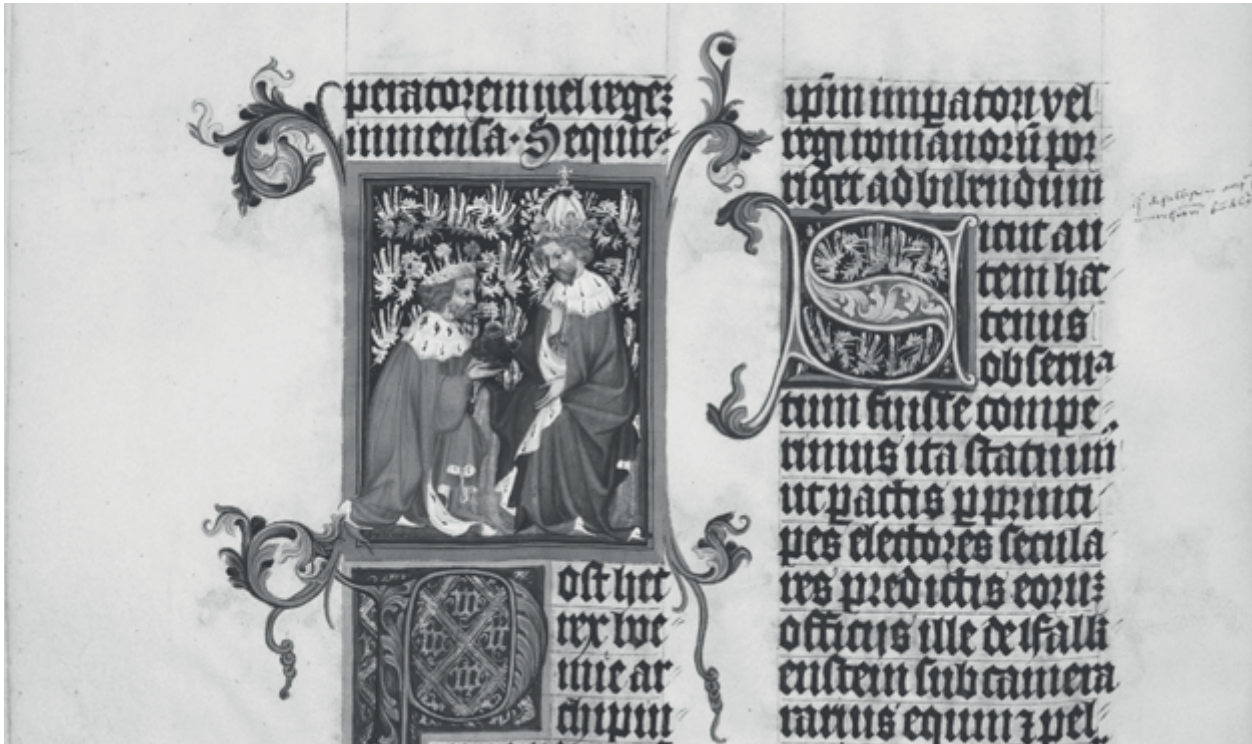 peratorem uel regeʒ
inmensa · Sequit᷑
Post hec
rex boe
mie ar
chipin
ip̄i imꝑatori vel
regi romanorū por
riget ad bibendum
Sicut au
tem hac
tenus
obserua
tum fuisse compe
rimus ita statuimꝰ
ut ꝑactis ꝑ princi
pes electores secula
res predictis eoruʒ
officijs ille de ffalk
enstein subcamera
rarius equum ⁊ pel